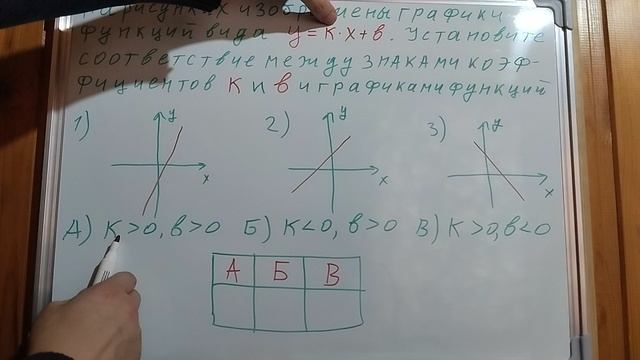 рисунках изображены графики
функций вида y=k·x+b. Установите
соответствие между знаками коэф-
фициентов k и b и графиками функций
1) y x 2) y x 3) y x
А) k>0, b>0 Б) k<0, b>0 В) k>0, b<0
А Б В